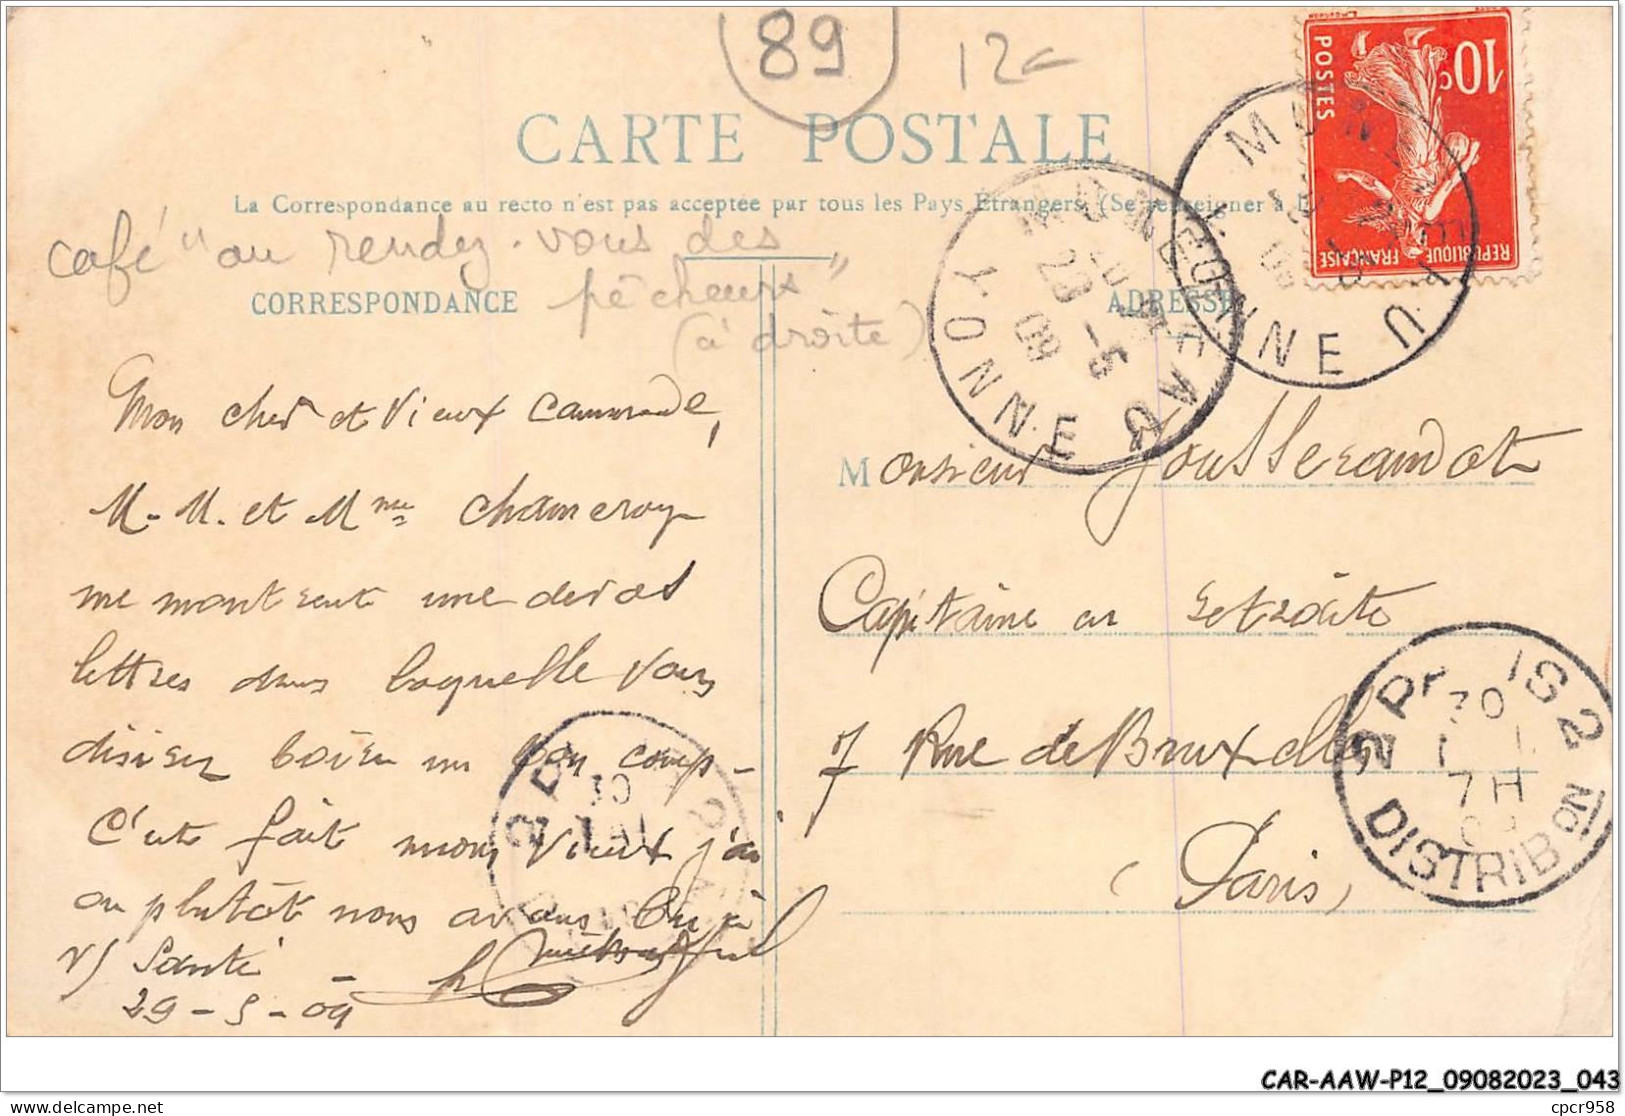 89
12€
CARTE POSTALE
La Correspondance au recto n'est pas acceptée par tous les Pays Étrangers. (Se renseigner à
café "au rendez-vous des
pêcheurs"
(à droite)
CORRESPONDANCE
ADRESSE
10c
POSTES
REPUBLIQUE FRANÇAISE
YONNE
29 -5
09
YONNE
Mon cher et Vieux Camarade,
M. M. et Mme Chameroy
me montrent une de vos
lettres dans laquelle vous
disiez boire un bon coup -
C'est fait mon Vieux j'ai
ou plutôt nous avons bu à
v/ Santé -
29-5-09
Monsieur Jousserandot
Capitaine en retraite
7 Rue de Bruxelles
(Paris)
30
7H
DISTRIBON
CAR-AAW-P12_09082023_043
cpcr958